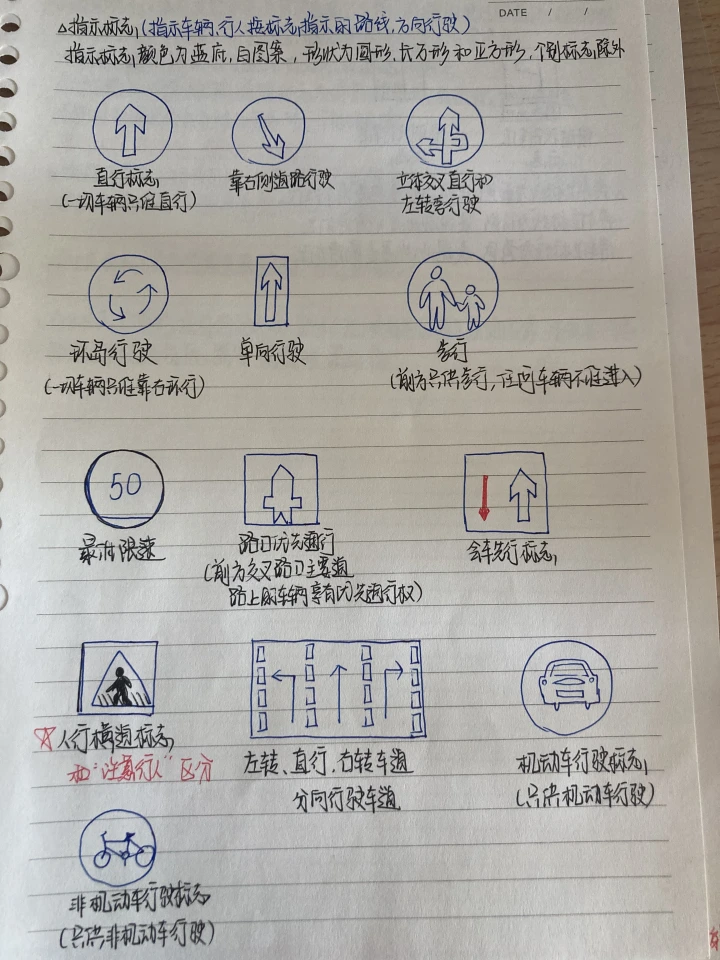 DATE / /
△指示标志(指示车辆、行人按标志指示的路线,方向行驶)
指示标志颜色为蓝底,白图案,形状为圆形,长方形和正方形,个别标志除外
直行标志
(一切车辆只准直行)
靠右侧道路行驶
立体交叉直行和
左转弯行驶
环岛行驶
(一切车辆只准靠右环行)
单向行驶
步行
(前方只供步行,任何车辆不准进入)
50
最低限速
路口优先通行
(前方交叉路口主要道
路上的车辆享有优先通行权)
会车先行标志
☆人行横道标志
和"注意行人"区分
左转、直行、右转车道
分向行驶车道
机动车行驶标志
(只供机动车行驶)
非机动车行驶标志
(只供非机动车行驶)